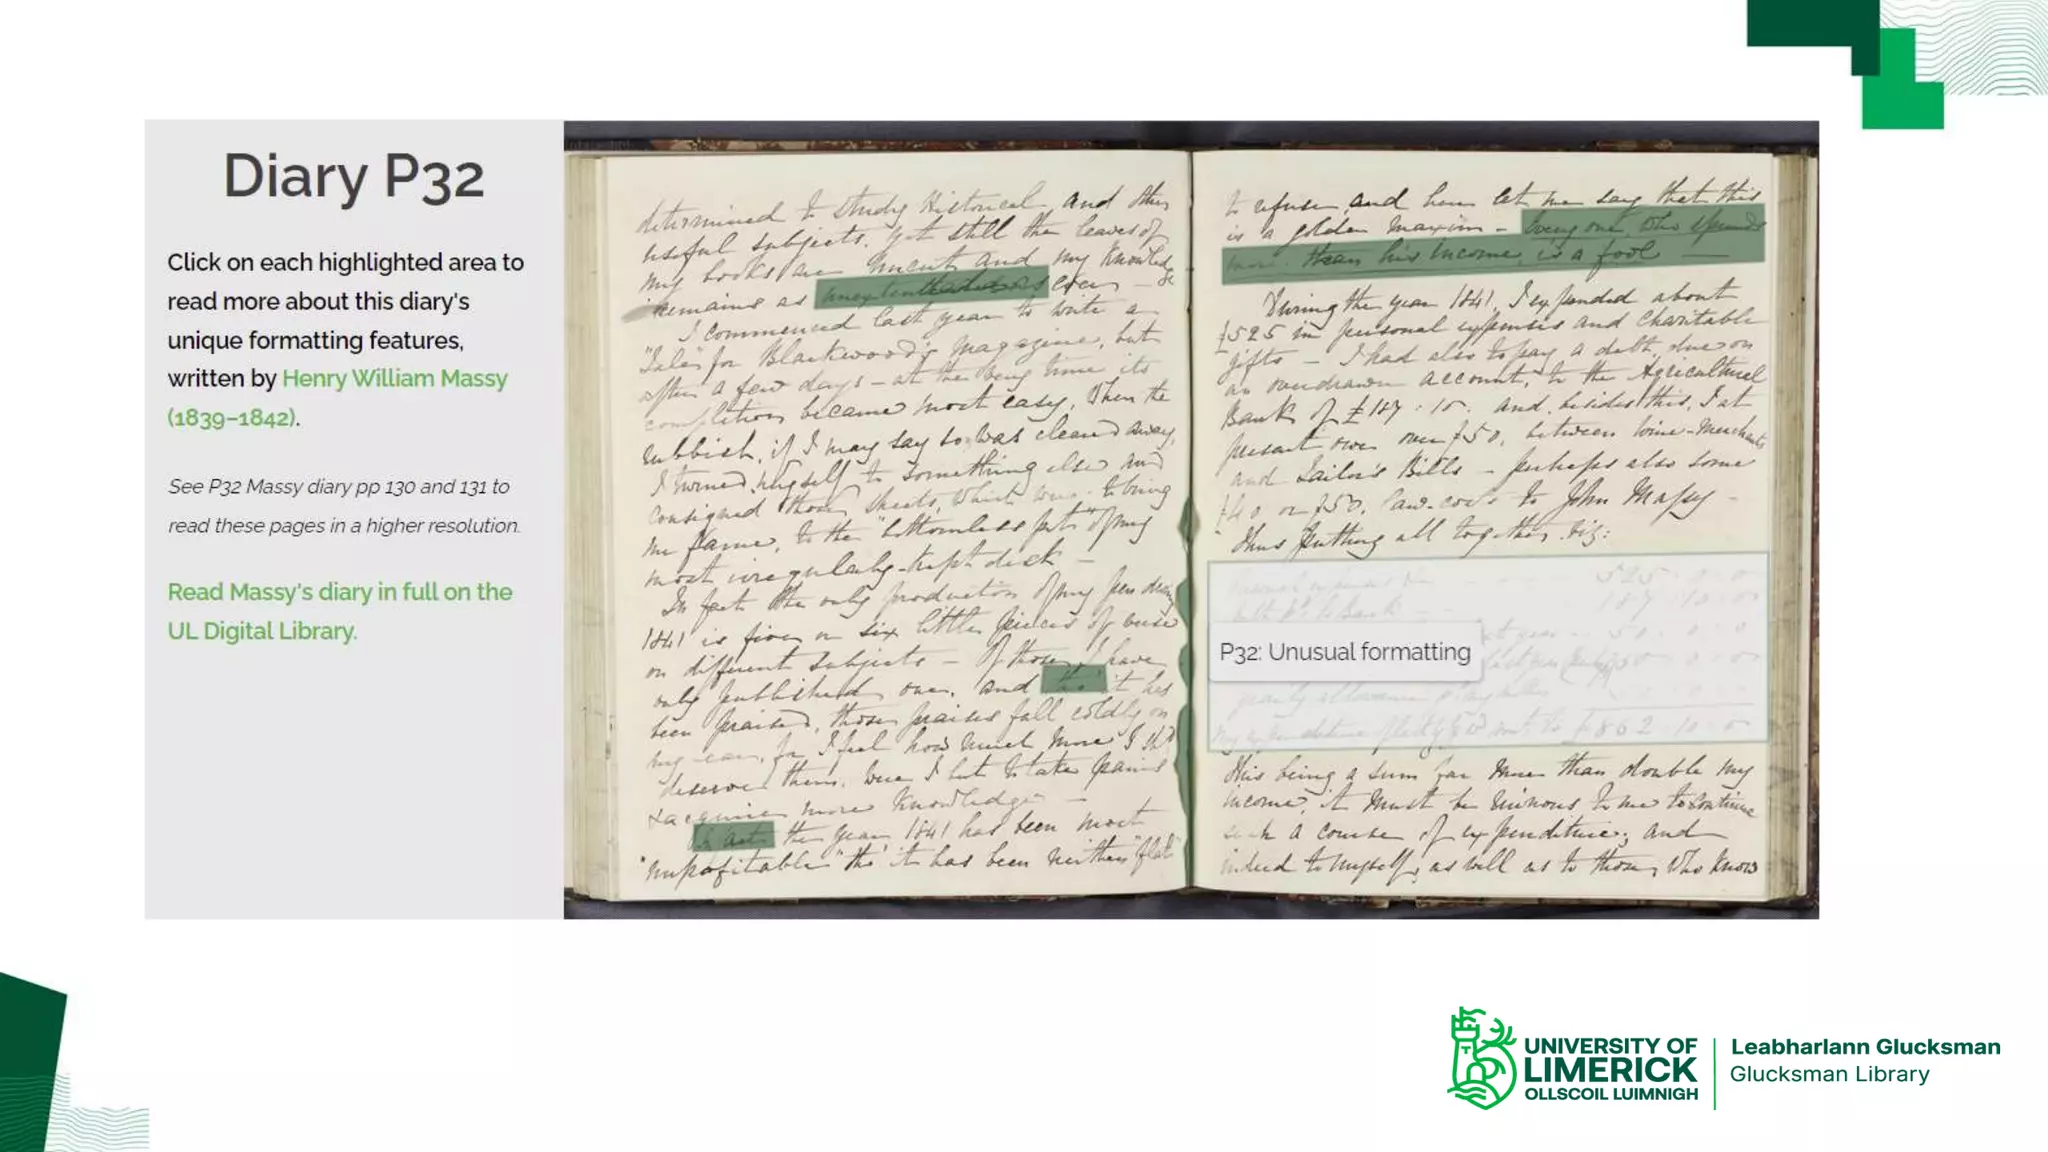 Diary P32
Click on each highlighted area to
read more about this diary's
unique formatting features,
written by Henry William Massy
(1839–1842).
See P32 Massy diary pp 130 and 131 to
read these pages in a higher resolution.
Read Massy's diary in full on the
UL Digital Library.
determined to study Historical and other
useful subjects. Yet still the leaves of
my books are uncut and my knowledge
remains as ever –
I commenced last year to write a
"Tale" for Blackwood's Magazine, but
after a few days – at the being time its
completion became most easy. When the
rubbish, if I may say so, was cleared away,
I turned myself to something else and
consigned those sheets, which were to bring
me fame, to the "bottomless pit" of my
most irregularly-kept desk –
In fact the only production of my pen during
1841 is five or six little pieces of verse
on different subjects – Of those I have
only published one, and tho' it has
been praised, those praises fall coldly on
my ear, for I feel how much more I shd
deserve them, were I but to take pains
& acquire more knowledge –
In fact the year 1841 has been most
"unprofitable" tho' it has been neither "flat"
to refuse, and here let me say that this
is a golden maxim – every one who spends
more than his income, is a fool —
During the year 1841, I expended about
£525 in personal expenses and charitable
gifts – I had also to pay a debt, due on
an overdrawn account, to the Agricultural
Bank of £187 : 10. and, besides this, I at
present owe over £50, between wine-merchants
and Tailor's Bills – perhaps also some
£40 or £50, law-costs to John Massy –
Thus putting all together viz:
525 . 0 . 0
187 . 10 . 0
P32: Unusual formatting
£862 . 10 . 0
This being a sum far more than double my
income, it must be ruinous to me to continue
such a course of expenditure; and
indeed to myself, as well as to those, who know
UNIVERSITY OF
LIMERICK
OLLSCOIL LUIMNIGH
Leabharlann Glucksman
Glucksman Library